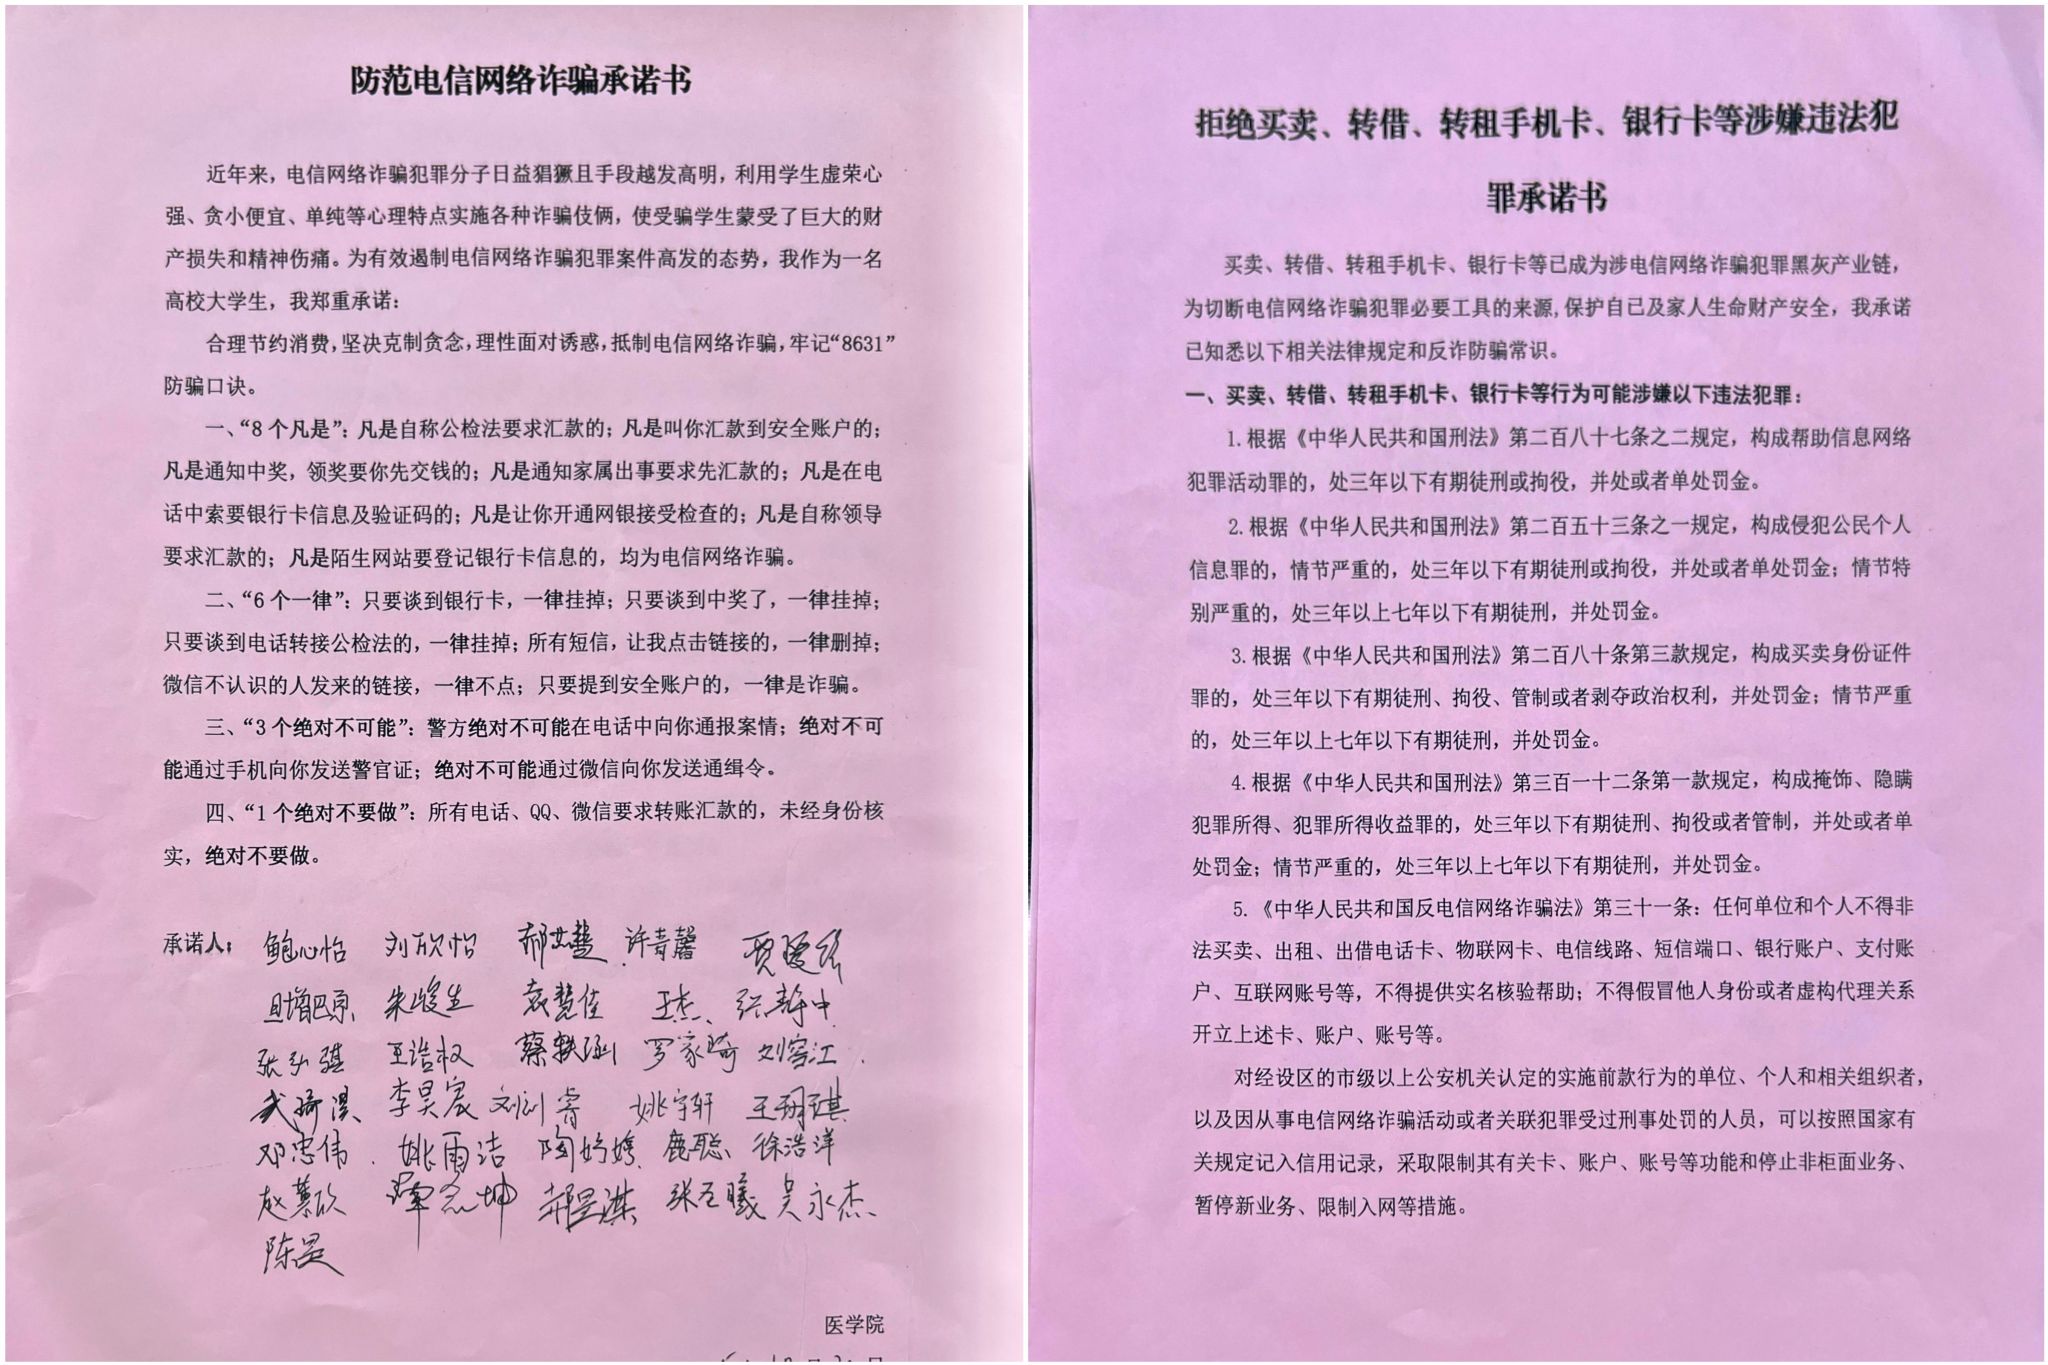 防范电信网络诈骗承诺书
近年来，电信网络诈骗犯罪分子日益猖獗且手段越发高明，利用学生虚荣心
强、贪小便宜、单纯等心理特点实施各种诈骗伎俩，使受骗学生蒙受了巨大的财
产损失和精神伤痛。为有效遏制电信网络诈骗犯罪案件高发的态势，我作为一名
高校大学生，我郑重承诺：
合理节约消费，坚决克制贪念，理性面对诱惑，抵制电信网络诈骗，牢记“8631”
防骗口诀。
一、“8个凡是”：凡是自称公检法要求汇款的；凡是叫你汇款到安全账户的；
凡是通知中奖，领奖要你先交钱的；凡是通知家属出事要求先汇款的；凡是在电
话中索要银行卡信息及验证码的；凡是让你开通网银接受检查的；凡是自称领导
要求汇款的；凡是陌生网站要登记银行卡信息的，均为电信网络诈骗。
二、“6个一律”：只要谈到银行卡，一律挂掉；只要谈到中奖了，一律挂掉；
只要谈到电话转接公检法的，一律挂掉；所有短信，让我点击链接的，一律删掉；
微信不认识的人发来的链接，一律不点；只要提到安全账户的，一律是诈骗。
三、“3个绝对不可能”：警方绝对不可能在电话中向你通报案情；绝对不可
能通过手机向你发送警官证；绝对不可能通过微信向你发送通缉令。
四、“1个绝对不要做”：所有电话、QQ、微信要求转账汇款的，未经身份核
实，绝对不要做。
承诺人： 鲍心怡 刘欣怡 许青馨
朱峻生 袁慧佳 王杰 张静中
张弘骐 王浩权 蔡轶涵 罗家琦 刘容江
李昊宸 姚宇轩 王玥琪
邓忠伟 姚雨洁 陶妤婷 鹿聪 徐浩洋
赵慕欣 吴永杰
陈昊
医学院
拒绝买卖、转借、转租手机卡、银行卡等涉嫌违法犯
罪承诺书
买卖、转借、转租手机卡、银行卡等已成为涉电信网络诈骗犯罪黑灰产业链，
为切断电信网络诈骗犯罪必要工具的来源,保护自己及家人生命财产安全，我承诺
已知悉以下相关法律规定和反诈防骗常识。
一、买卖、转借、转租手机卡、银行卡等行为可能涉嫌以下违法犯罪：
1.根据《中华人民共和国刑法》第二百八十七条之二规定，构成帮助信息网络
犯罪活动罪的，处三年以下有期徒刑或拘役，并处或者单处罚金。
2.根据《中华人民共和国刑法》第二百五十三条之一规定，构成侵犯公民个人
信息罪的，情节严重的，处三年以下有期徒刑或拘役，并处或者单处罚金；情节特
别严重的，处三年以上七年以下有期徒刑，并处罚金。
3.根据《中华人民共和国刑法》第二百八十条第三款规定，构成买卖身份证件
罪的，处三年以下有期徒刑、拘役、管制或者剥夺政治权利，并处罚金；情节严重
的，处三年以上七年以下有期徒刑，并处罚金。
4.根据《中华人民共和国刑法》第三百一十二条第一款规定，构成掩饰、隐瞒
犯罪所得、犯罪所得收益罪的，处三年以下有期徒刑、拘役或者管制，并处或者单
处罚金；情节严重的，处三年以上七年以下有期徒刑，并处罚金。
5.《中华人民共和国反电信网络诈骗法》第三十一条：任何单位和个人不得非
法买卖、出租、出借电话卡、物联网卡、电信线路、短信端口、银行账户、支付账
户、互联网账号等，不得提供实名核验帮助；不得假冒他人身份或者虚构代理关系
开立上述卡、账户、账号等。
对经设区的市级以上公安机关认定的实施前款行为的单位、个人和相关组织者，
以及因从事电信网络诈骗活动或者关联犯罪受过刑事处罚的人员，可以按照国家有
关规定记入信用记录，采取限制其有关卡、账户、账号等功能和停止非柜面业务、
暂停新业务、限制入网等措施。